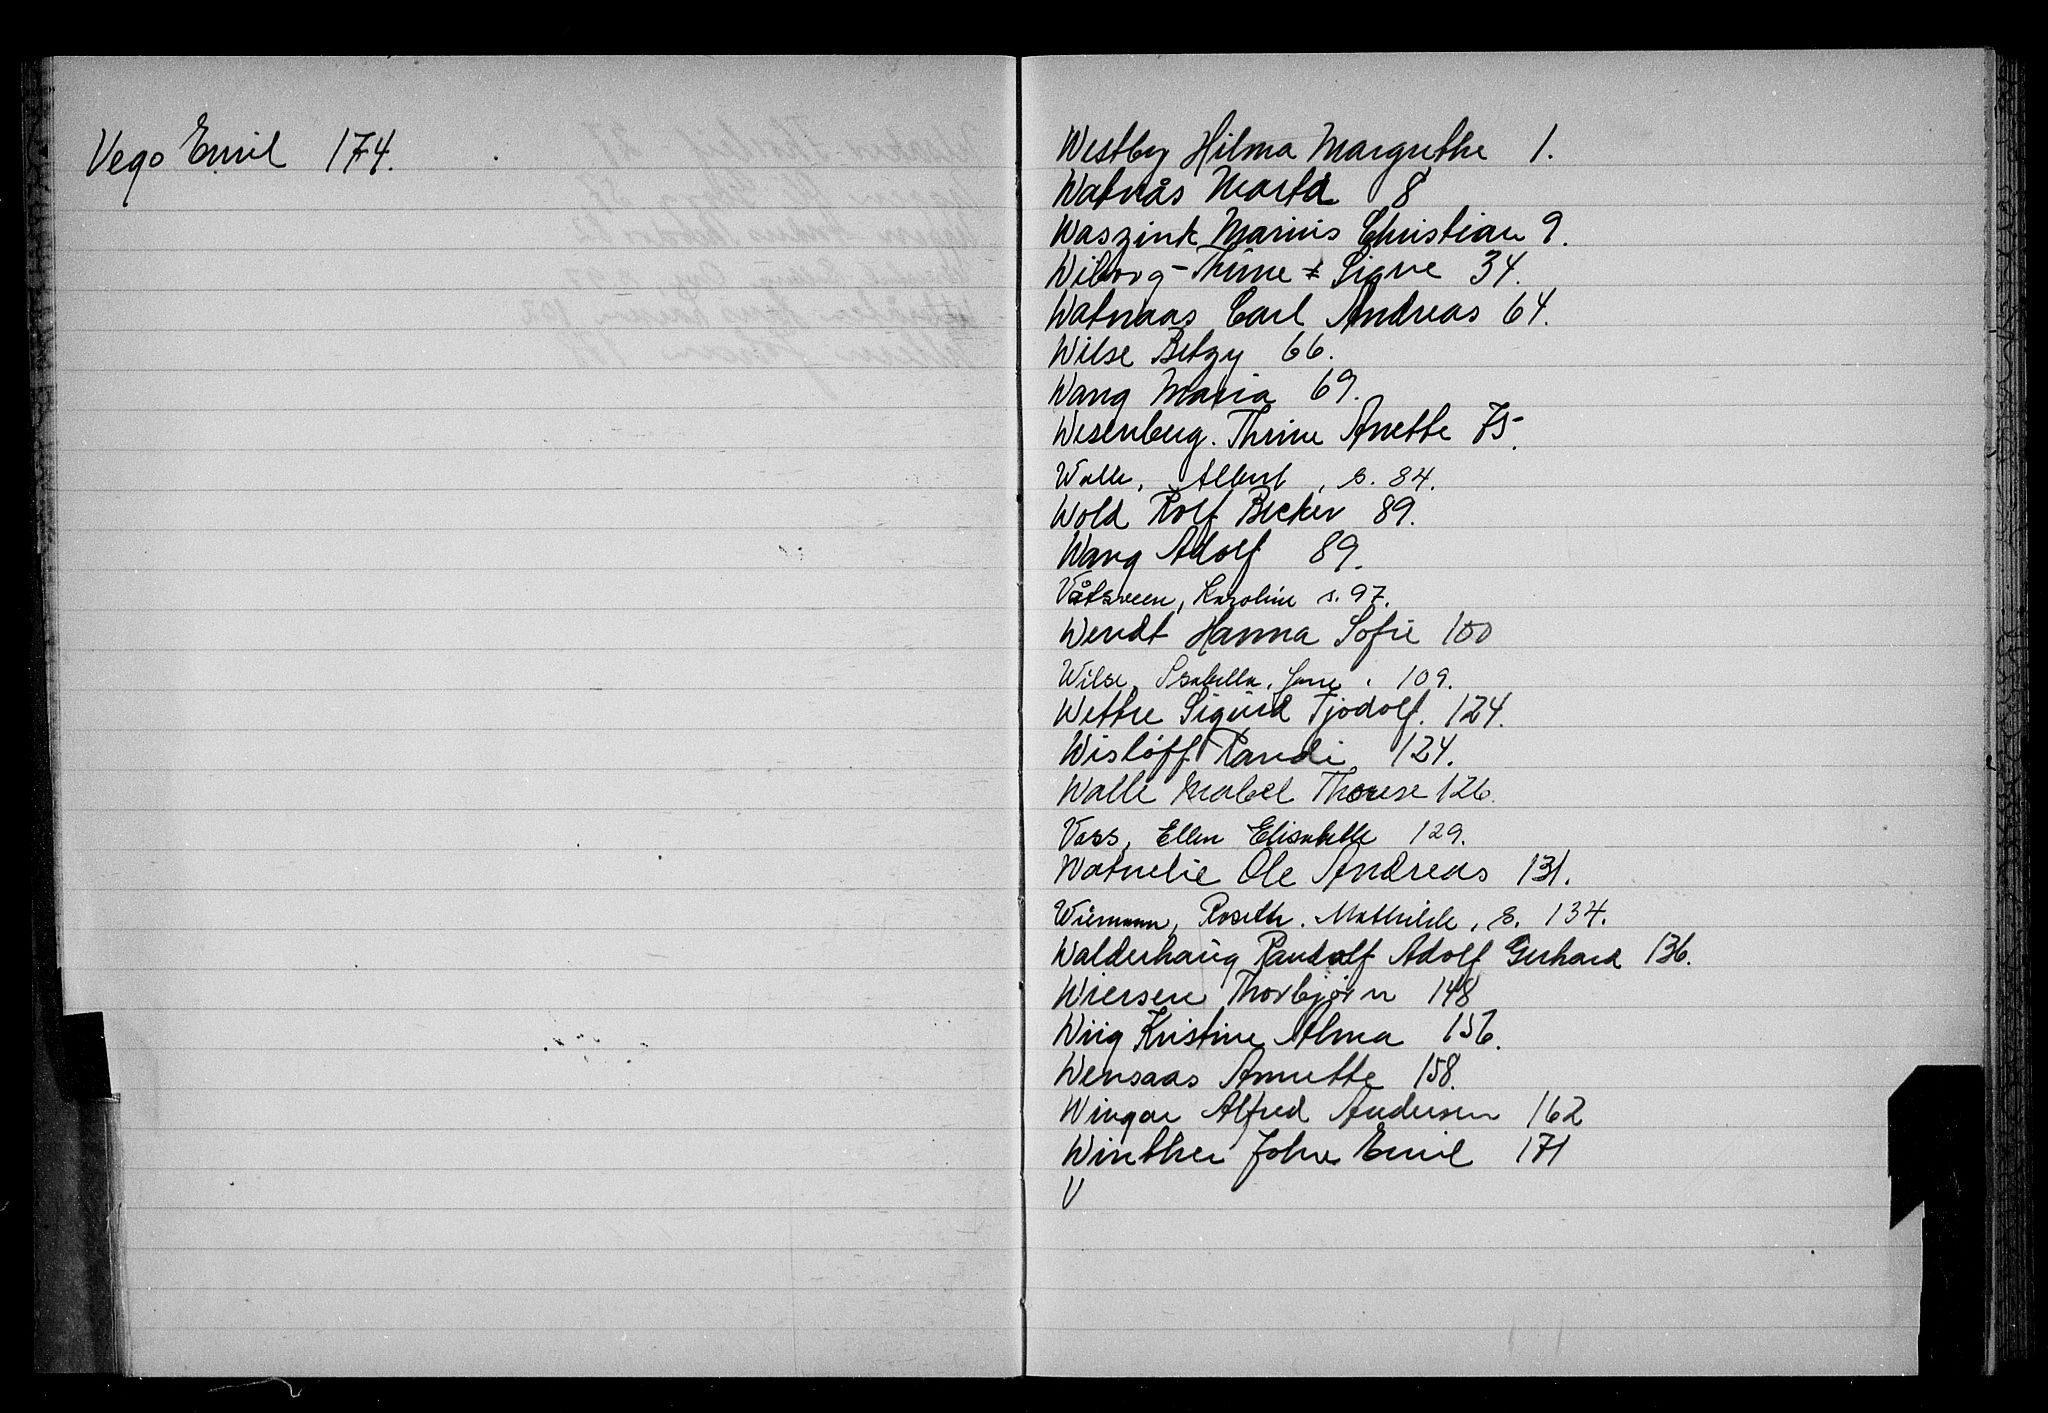 Vego Emil 174.
Westby Hilma Margrethe 1.
Watnås Marta 8
Waszink Marius Christian 9.
Wiborg-Thune Signe 34.
Watnaas Carl Andreas 64.
Wilse Betzy 66.
Wang Maria 69.
Wesenberg. Thrine Anette 75.
Walle, Albert, s. 84.
Wold Rolf Becker 89.
Wang Adolf 89.
Våtsveen, Karoline s. 97.
Wendt Hanna Sofie 100
Wilse, Isabella, Jane, 109.
Wettre Sigurd Tjodolf. 124.
Wisløff Randi 124.
Walle Mabel Therese 126.
Vass, Ellen Elisabeth 129.
Watnelie Ole Andreas 131.
Mathilde, s. 134.
Walderhaug Randolf Adolf Gerhard 136.
Wiersen Thorbjørn 148
Wiig Kristine Alma 156.
Wensaas Annette 158.
Wingar Alfred Andersen 162
Winther John Emil 171
V